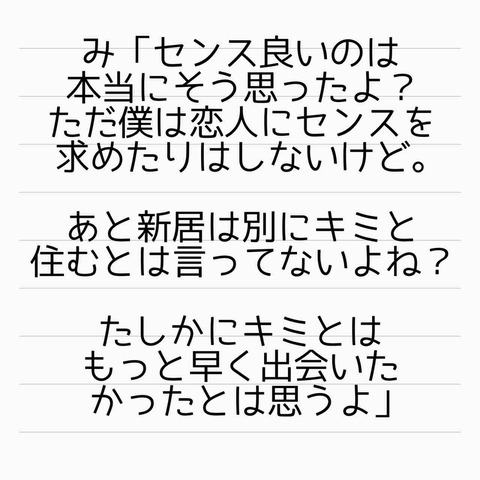 み「センス良いのは
本当にそう思ったよ？
ただ僕は恋人にセンスを
求めたりはしないけど。
あと新居は別にキミと
住むとは言ってないよね？
たしかにキミとは
もっと早く出会いた
かったとは思うよ」